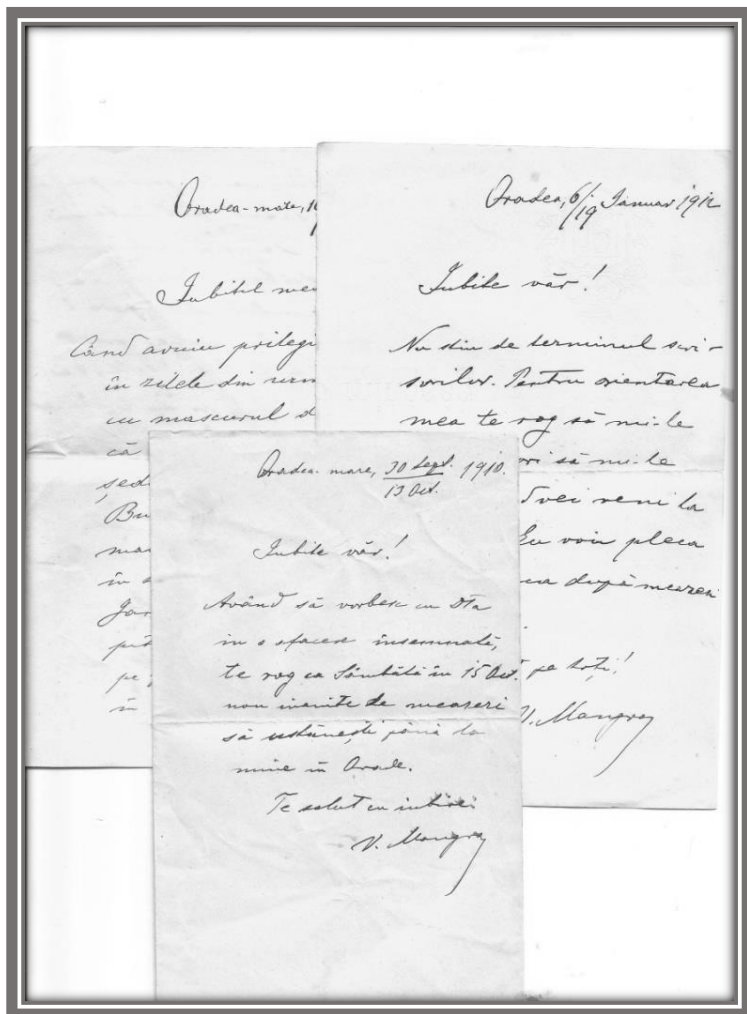 Oradea-mare, 1
Iubitul meu
Când avuiu prilegi
în zilele din urm
cu mascurul d
că
șed
Bu
ma
în
Jar
pân
pe
în
Oradea, 6/19 Januar 1912
Iubite văr!
Nu știu de terminul scri-
sorilor. Pentru orientarea
mea te rog să mi-le
ori să mi-le
vei veni la
Eu voiu pleca
după meazezi
pe toți!
V. Mangra
Oradea-mare, 30 Sept. 1910.
13 Oct.
Iubite văr!
Având să vorbesc cu Dta
in o afacere însemnată,
te rog ca Sâmbătă în 15 Oct.
nou inainte de meazezi
să ustănești până la
mine în Orade.
Te salut cu iubire
V. Mangra